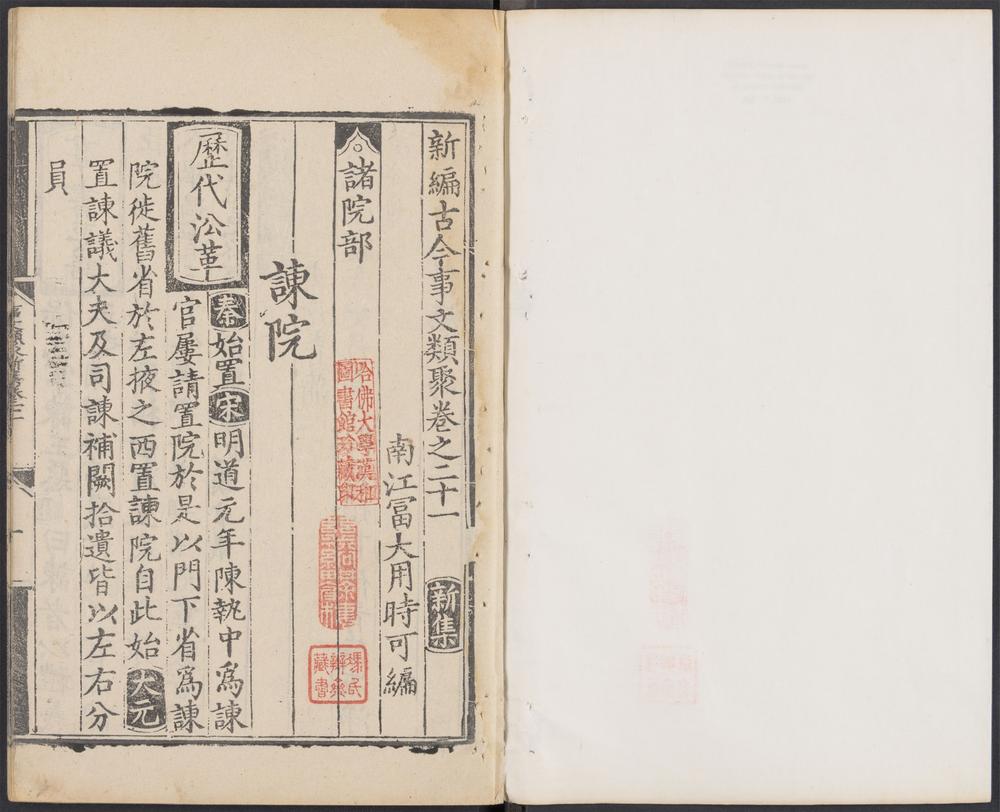 新編古今事文類聚卷之二十一 新集
南江冨大用時可編
諸院部
諫院
歷代㳂革
秦始置宋明道元年陳執中爲諫
官屢請置院於是以門下省爲諫
院徙舊省於左掖之西置諫院自此始大元
置諫議大夫及司諫補闕拾遺皆以左右分
員
哈佛大學漢和
圖書館珍藏印